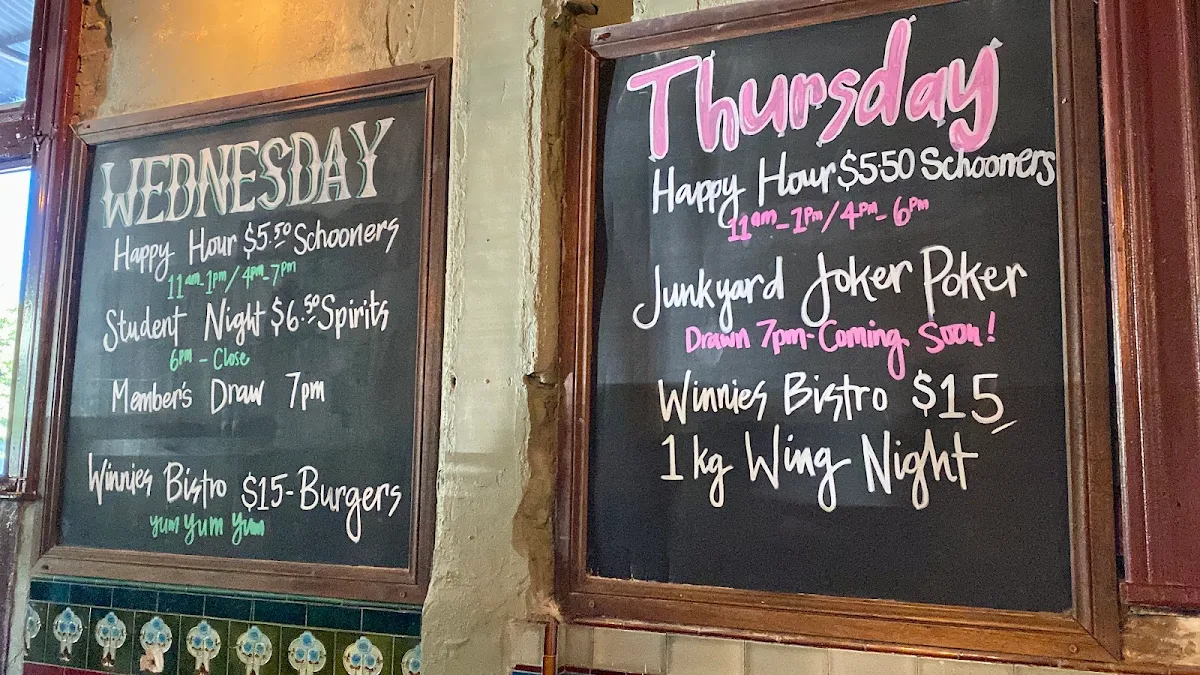 WEDNESDAY
Happy Hour $5.50 Schooners
11am-1pm/4pm-7pm
Student Night $6.50 Spirits
6pm - Close
Member's Draw 7pm
Winnies Bistro $15-Burgers
yum yum yum
Thursday
Happy Hour $5.50 Schooners
11am-1pm/4pm-6pm
Junkyard Joker Poker
Drawn 7pm-Coming Soon!
Winnies Bistro $15
1kg Wing Night